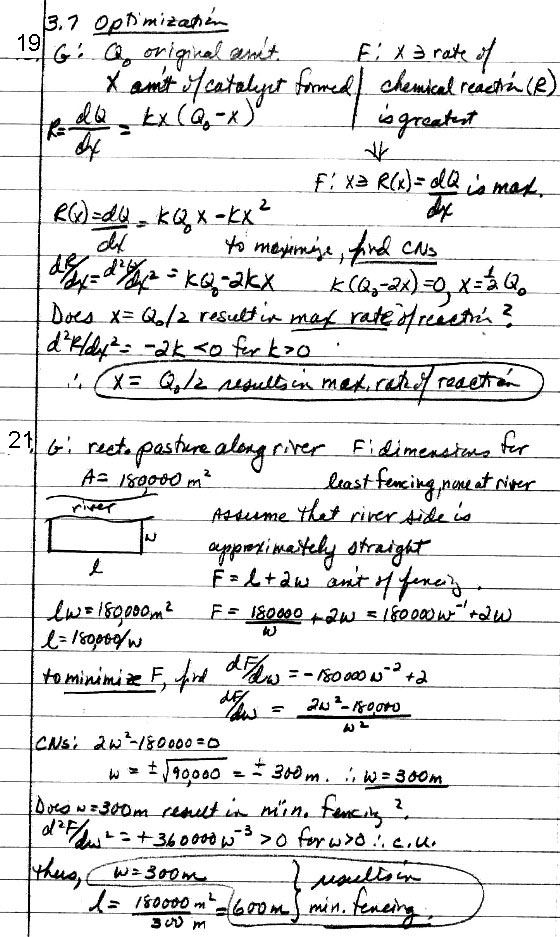 3.7 Optimization
19 G: Q₀ original am't. F: x ∋ rate of
x am't of catalyst formed chemical reaction (R)
R = dQ/dx = kx(Q₀-x) is greatest
⇓
F: x ∋ R(x) = dQ/dx is max.
R(x) = dQ/dx = kQ₀x - kx²
to maximize, find CNs
dR/dx = d²Q/dx² = kQ₀-2kx k(Q₀-2x)=0, x=½Q₀
Does x = Q₀/2 result in max rate of reaction?
d²R/dx² = -2k < 0 for k>0
∴ x = Q₀/2 results in max. rate of reaction
21. G: rect. pasture along river F: dimensions for
A = 180,000 m² least fencing, none at river
river Assume that river side is
w approximately straight
l F = l + 2w am't of fencing.
lw = 180,000 m² F = 180000/w + 2w = 180000w⁻¹ + 2w
l = 180,000/w
to minimize F, find dF/dw = -180000w⁻² + 2
dF/dw = 2w²-180,000/w²
CNs: 2w²-180000=0
w = ±√90,000 = ± 300m. ∴ w = 300m
Does w=300m result in min. fencing?
d²F/dw² = +360000w⁻³ > 0 for w>0 ∴ c.u.
thus, w=300m } results in
l = 180000 m²/300 m = 600m } min. fencing.